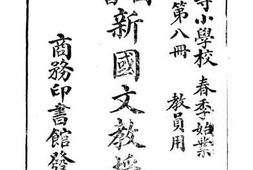 等小學校 春季始業
第八冊 教員用
新國文教授
商務印書館發